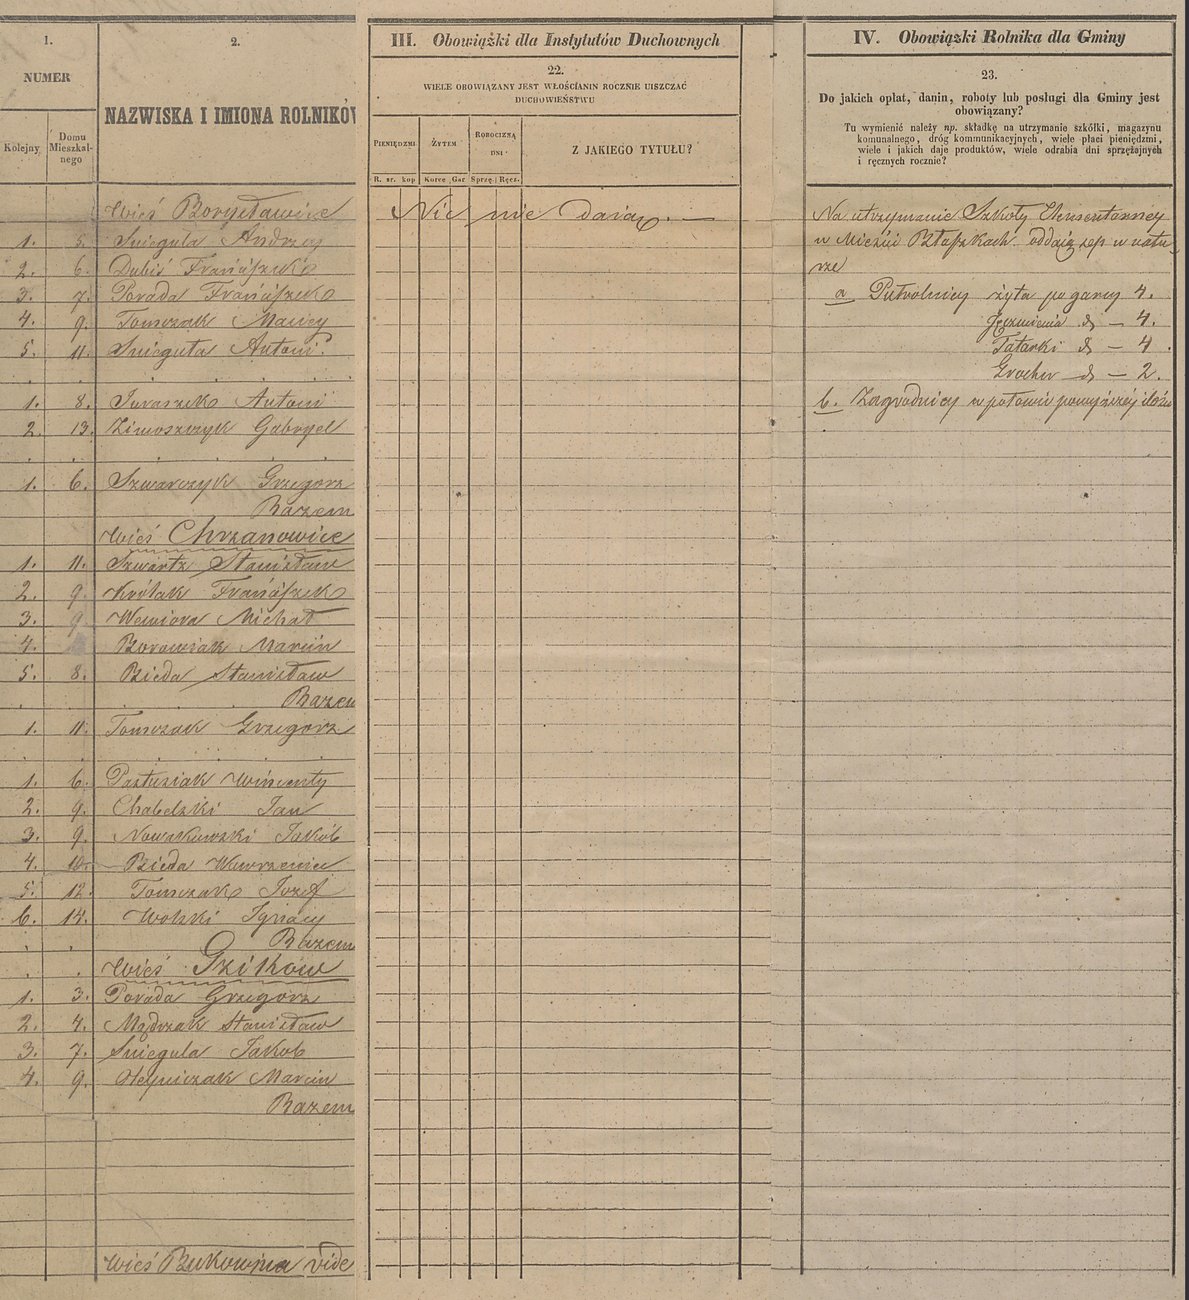 1.
2.
NUMER
NAZWISKA I IMIONA ROLNIKÓW
Kolejny
Domu Mieszkal-
nego
Wieś Borysławice
1. 5. Snieguła Andrzey
2. 6. Dubiś Franciszek
3. 7. Porada Franciszek
4. 9. Tomczak Maciey
5. 11. Snieguła Antoni
1. 8. Juraszek Antoni
2. 13. Zimoszczyk Gabryel
1. 6. Szwarczyk Grzegorz
Razem
Wieś Chrzanowice
1. 11. Szwartz Stanisław
2. 9. Królak Franciszek
3. 9. Wewiora Michał
4. Borowiak Marcin
5. 8. Bieda Stanisław
Razem
1. 11. Tomczak Grzegorz
1. 6. Pastusiak Wincenty
2. 9. Chabelski Jan
3. 9. Nowakowski Jakób
4. 10. Bieda Wawrzeniec
5. 12. Tomczak Jozef
6. 14. Wolski Ignacy
Razem
Wieś Gzików
1. 3. Porada Grzegorz
2. 4. Mądrzak Stanisław
3. 7. Snieguła Jakob
4. 9. Marcin
Razem
Wieś Bukowina vide
III. Obowiązki dla Instytutów Duchownych
22.
WIELE OBOWIĄZANY JEST WŁOŚCIANIN ROCZNIE UISZCZAĆ
DUCHOWIEŃSTWU
PIENIĘDZMI
ŻYTEM
ROBOCIZNĄ
DNI
Z JAKIEGO TYTUŁU?
R. sr. kop Korce Gar Sprzę. Ręcz.
Nic nie daią. —
IV. Obowiązki Rolnika dla Gminy
23.
Do jakich opłat, danin, roboty lub posługi dla Gminy jest
obowiązany?
Tu wymienić należy np. składkę na utrzymanie szkółki, magazynu
komunalnego, dróg kommunikacyjnych, wiele płaci pieniędzmi,
wiele i jakich daje produktów, wiele odrabia dni sprzężajnych
i ręcznych rocznie?
Na utrzymanie Szkoły Elementarney
w Mieście Błaszkach oddaią sep w natu-
rze
a Pułrolnicy żyta po garcy 4.
Jęczmienia d — 4.
Tatarki d — 4.
Grochu d — 2.
b. Zagrodnicy w połowie powyższej ilości